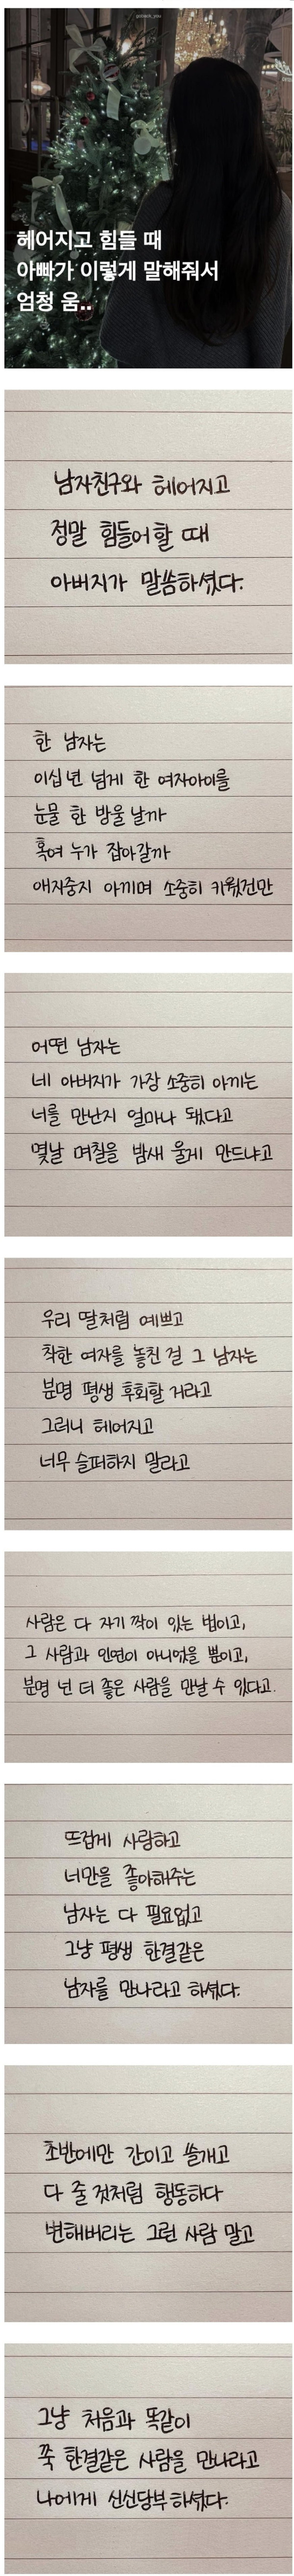 헤어지고 힘들 때
아빠가 이렇게 말해줘서
엄청 움..
남자친구와 헤어지고
정말 힘들어할 때
아버지가 말씀하셨다.
한 남자는
이십년 넘게 한 여자아이를
눈물 한 방울 날까
혹여 누가 잡아갈까
애지중지 아끼며 소중히 키웠건만
어떤 남자는
네 아버지가 가장 소중히 아끼는
너를 만난지 얼마나 됐다고
몇날 며칠을 밤새 울게 만드냐고
우리 딸처럼 예쁘고
착한 여자를 놓친 걸 그 남자는
분명 평생 후회할 거라고
그러니 헤어지고
너무 슬퍼하지 말라고
사람은 다 자기 짝이 있는 법이고,
그 사람과 인연이 아니었을 뿐이고,
분명 넌 더 좋은 사람을 만날 수 있다고.
뜨겁게 사랑하고
너만을 좋아해주는
남자는 다 필요없고
그냥 평생 한결같은
남자를 만나라고 하셨다.
초반에만 간이고 쓸개고
다 줄 것처럼 행동하다
변해버리는 그런 사람 말고
그냥 처음과 똑같이
쭉 한결같은 사람을 만나라고
나에게 신신당부 하셨다.